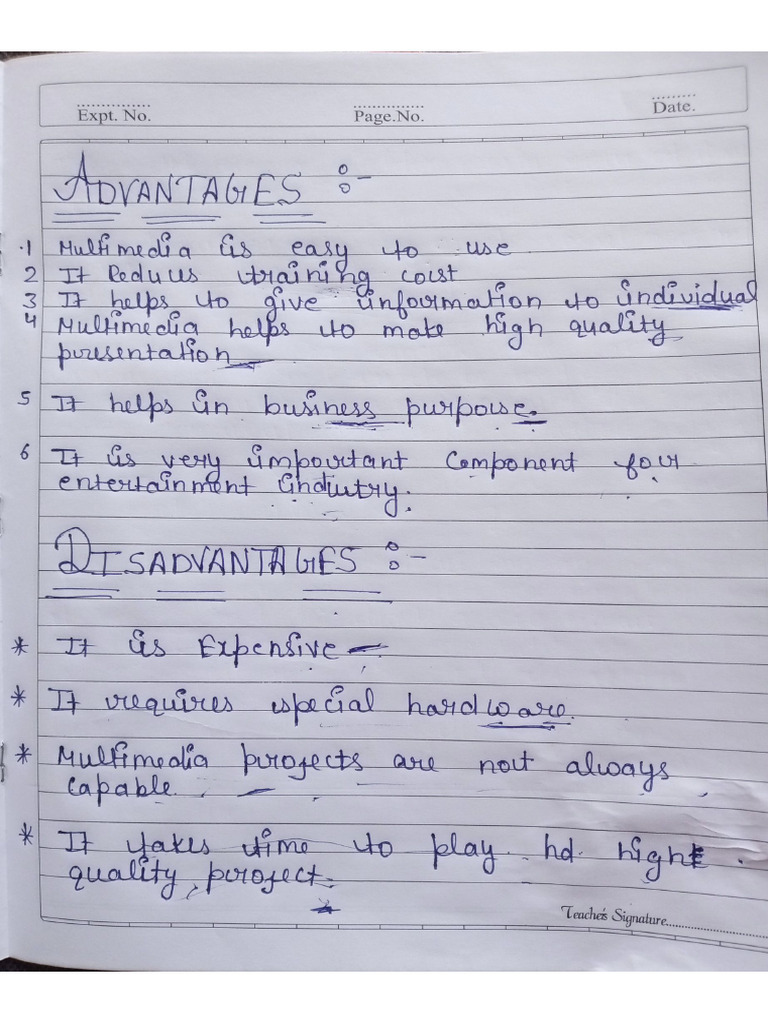 Expt. No.
Page.No.
Date.
ADVANTAGES :-
1 Multimedia is easy to use
2 It Reduus training cost
3 It helps to give information to individual
4 Multimedia helps to make high quality
presentation
5 It helps in business purpouse.
6 It is very important component for
entertainment indutry.
DISADVANTAGES :-
* It is Expensive
* It requires special hardware.
* Multimedia projects are not always
capable.
* It takes time to play hd hight
quality project.
Teache's Signature